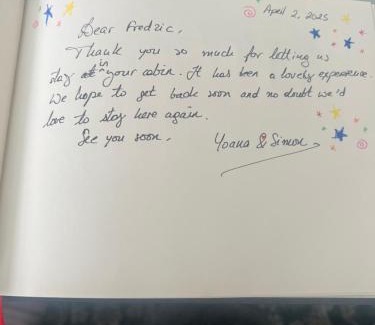 April 2, 2025
Dear Fredric,
Thank you so much for letting us
stay at in your cabin. It has been a lovely experience.
We hope to get back soon and no doubt we'd
love to stay here again.
See you soon.
Yoana & Simon